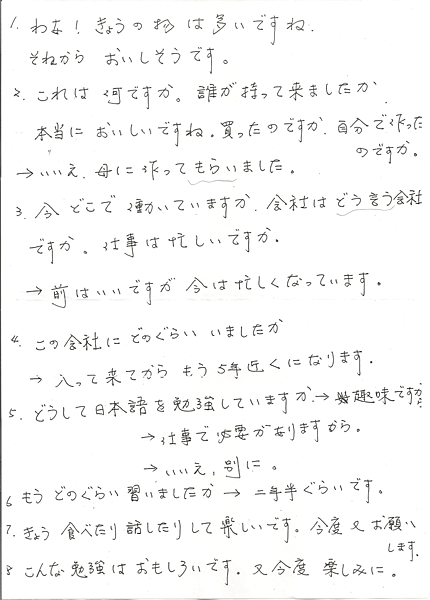 1. わあ！きょうの物は多いですね.
それから おいしそうです。
2. これは 何ですか。誰が持って来ましたか
本当に おいしいですね。買ったのですか. 自分で作った
のですか.
→ いいえ. 母に作ってもらいました。
3. 今 どこで 働いていますか. 会社は どう言う会社
ですか。仕事は忙しいですか.
→ 前はいいですが 今は忙しくなっています.
4. この会社に どのぐらい いましたか
→ 入って来てから もう 5年近くになります.
5. どうして日本語を勉強していますか → 趣味ですから
→ 仕事で必要がありますから.
→ いいえ, 別に。
6 もう どのぐらい習いましたか → 二年半ぐらいです.
7. きょう 食べたり 話したりして 楽しいです。今度又お願い
します.
8 こんな勉強はおもしろいです. 又今度 楽しみに。